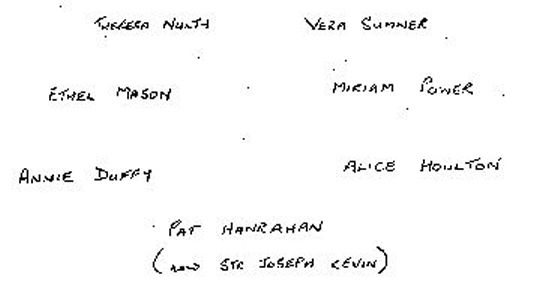 THERESA NULTH VERA SUMNER
ETHEL MASON MIRIAM POWER
ANNIE DUFFY ALICE HOULTON
PAT HANRAHAN
(NOW SR JOSEPH KEVIN)